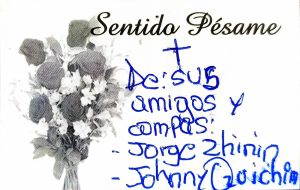 Sentido Pésame
De: sus
amigos y
compas:
- Jorge Zhinin
- Johnny Quichin